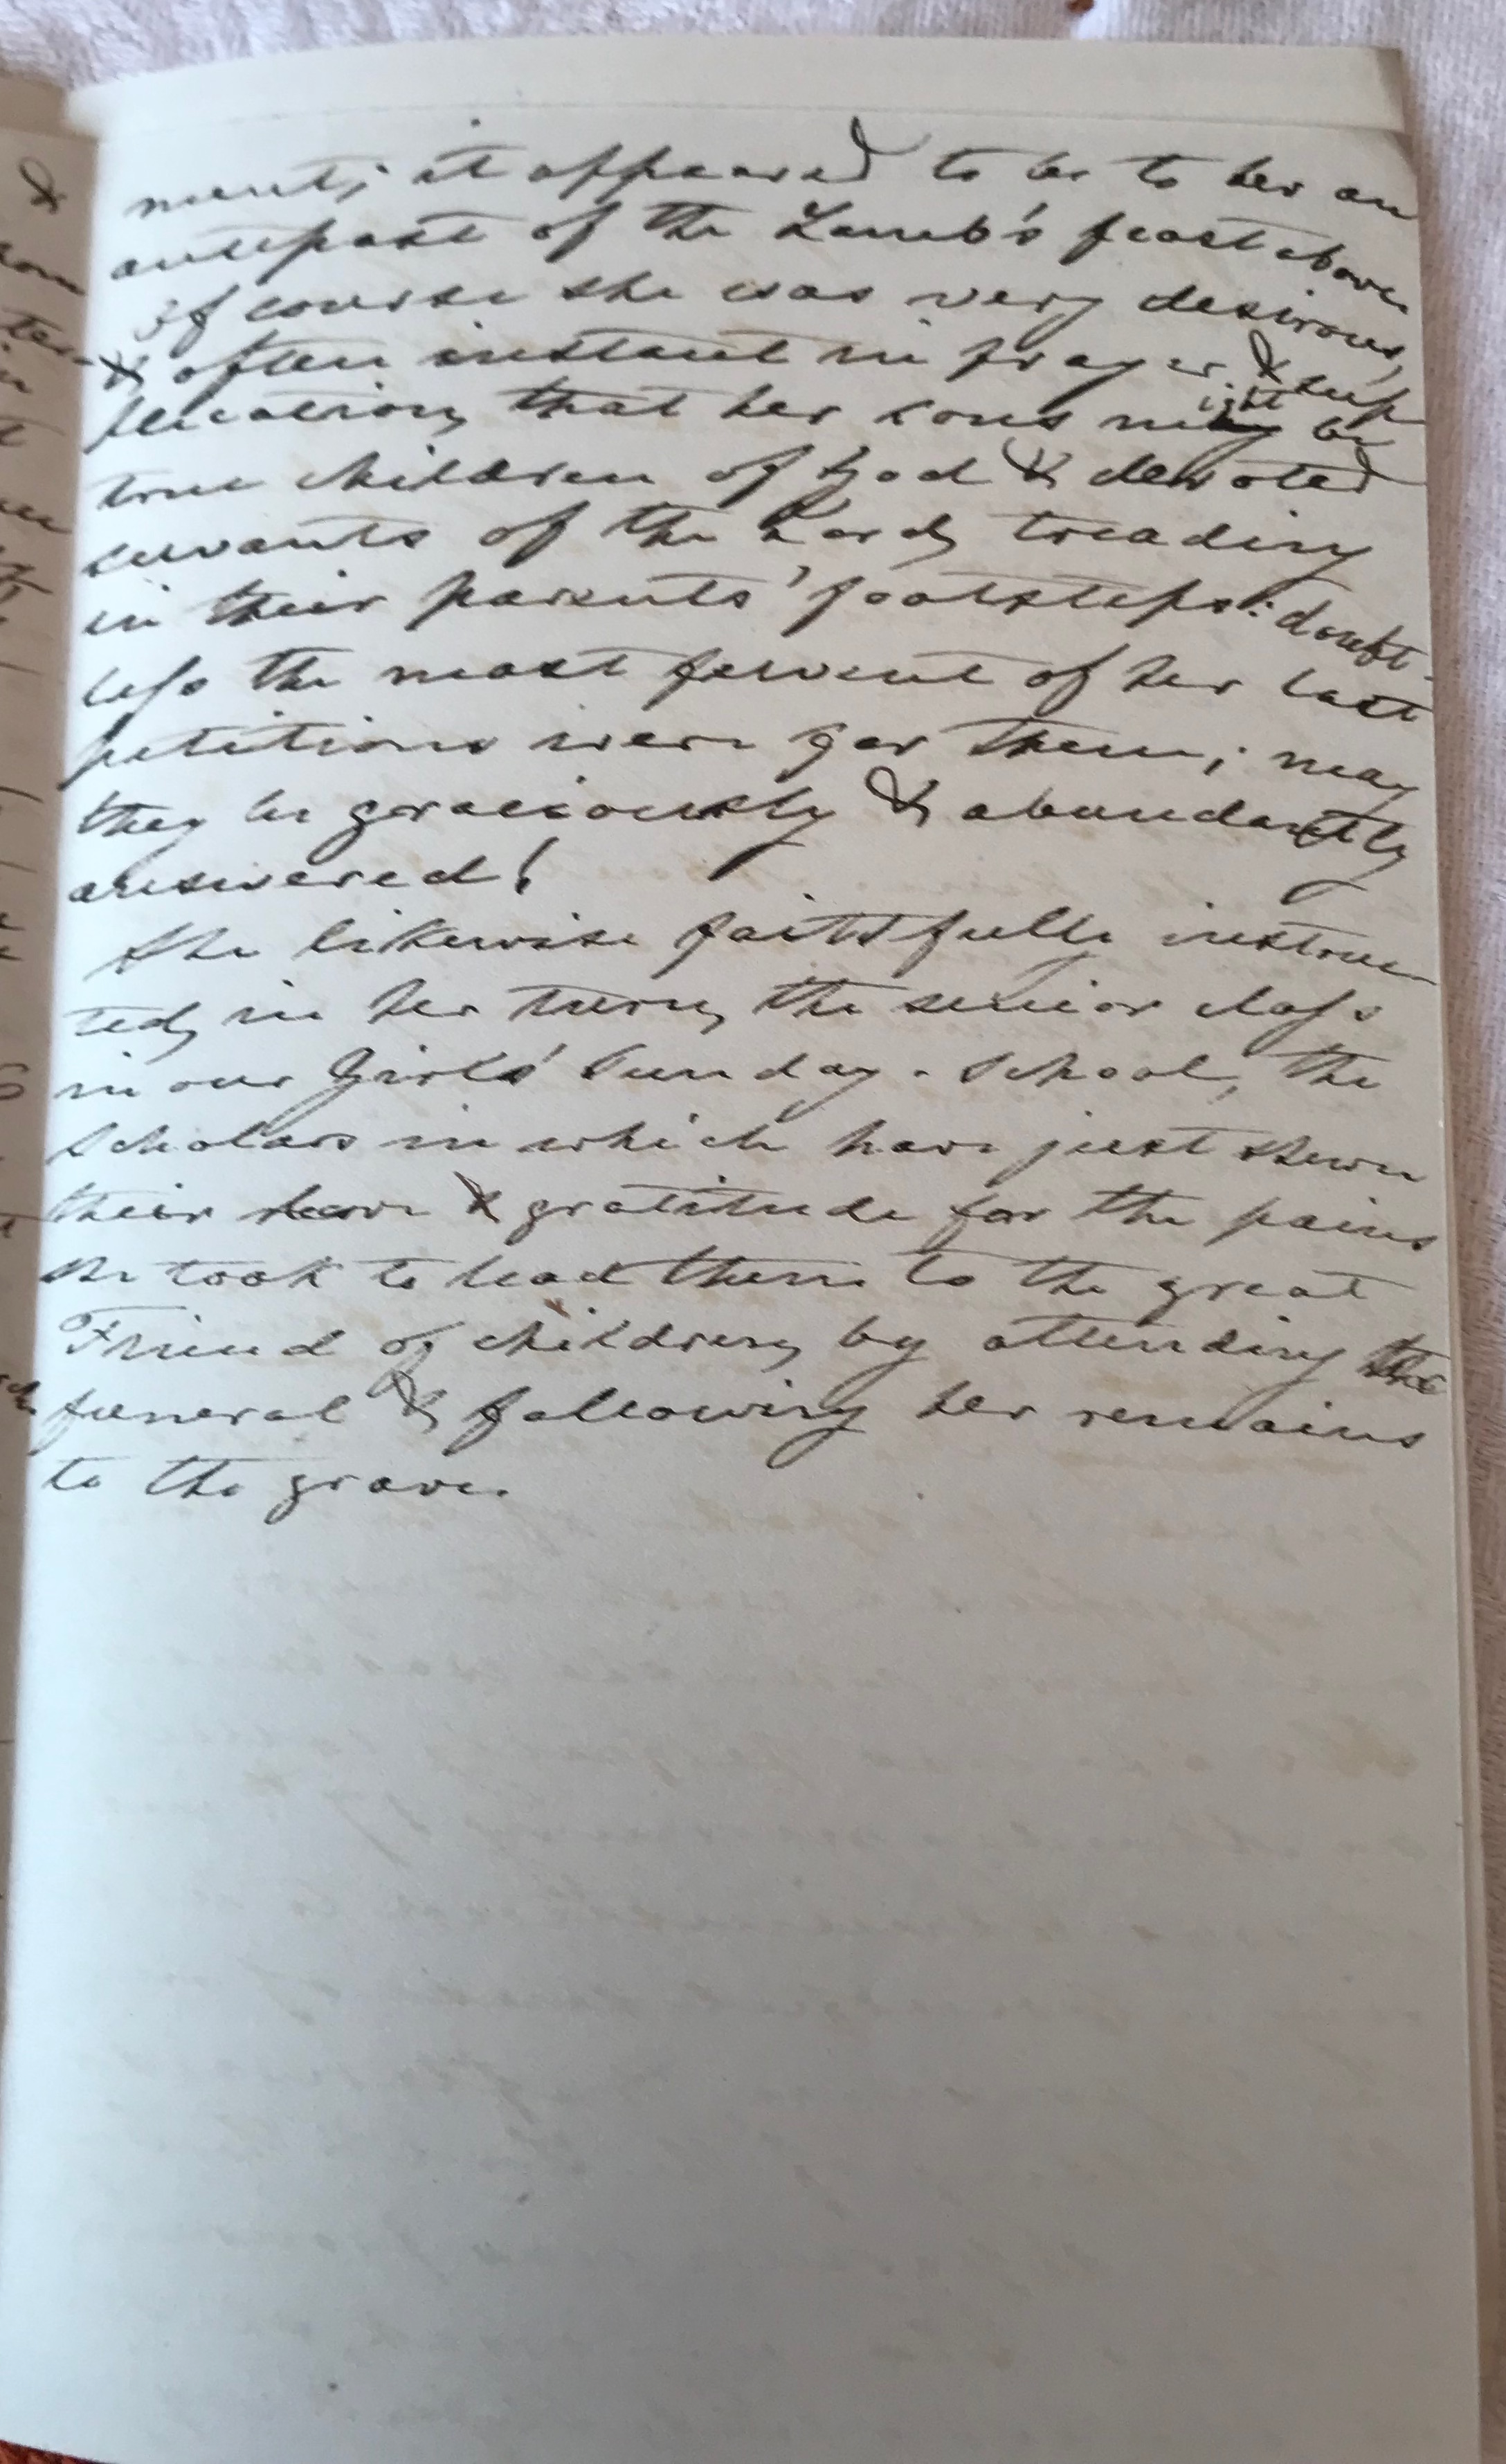 ment; it appeared to be to her an
antepast of the Lamb's feast above.
Of course she was very desirous,
& often instant in prayer & sup
plication, that her sons might be
true children of God & devoted
servants of the Lord, treading
in their parents' footsteps: doubt-
less the most fervent of her last
petitions were for them; may
they be graciously & abundantly
answered!
She likewise faithfully instruc
ted, in her turn, the senior class
in our Girls' Sunday-School, the
scholars in which have just shewn
their love & gratitude for the pains
she took to lead them to the great
Friend of children, by attending the
funeral & following her remains
to the grave.